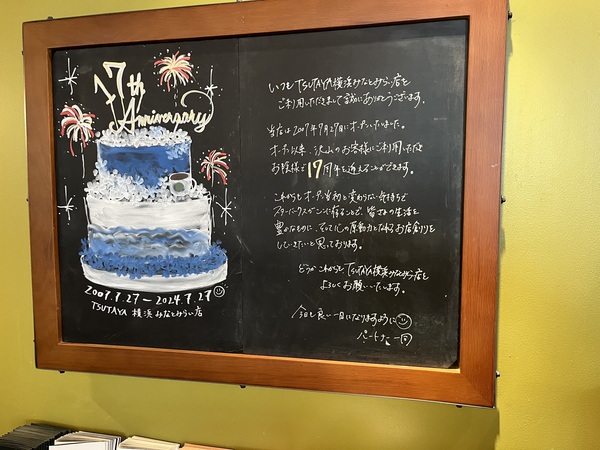 17th
Anniversary
2007.7.27 - 2024.7.27
TSUTAYA 横浜みなとみらい店
いつもTSUTAYA横浜みなとみらい店を
ご利用いただきまして誠にありがとうございます。
当店は2007年7月27日にオープンいたしました。
オープン以来、沢山のお客様にご利用いただき
お陰様で17周年を迎えることができます。
これからもオープン当初と変わらない気持ちで
スターバックスがここに在ることで、皆さまの生活を
豊かなものに、そして心の原動力となれるお店創りを
していきたいと思っております。
どうかこれからもTSUTAYA横浜みなとみらい店を
よろしくお願いいたします。
今日も良い一日になりますように
パートナー一同